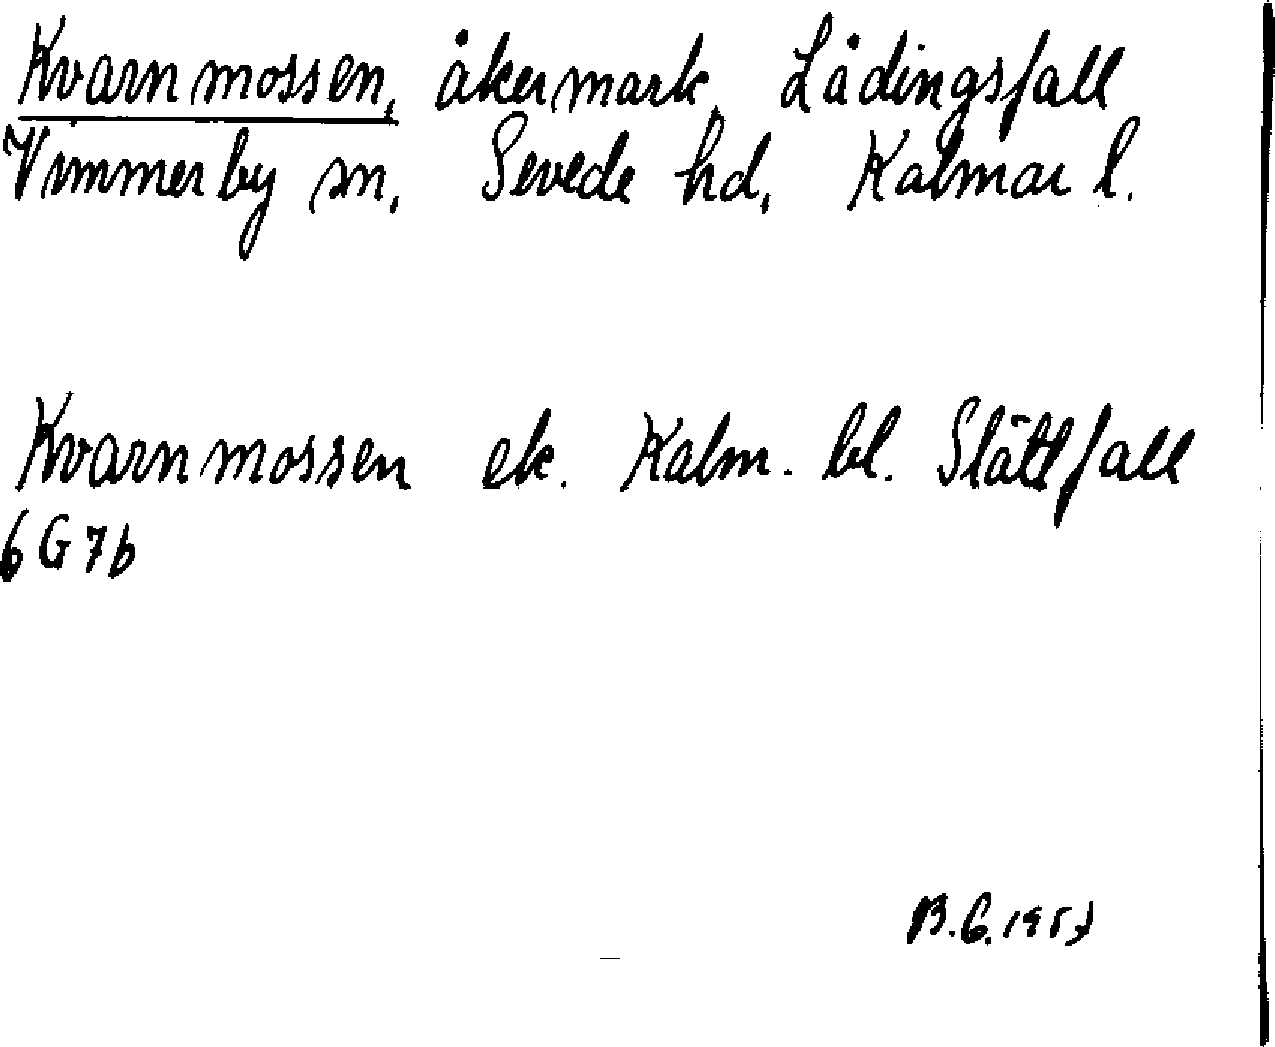 Kvarnmossen, åkermark, Lådingsfall
Vimmerby sn, Sevede hd, Kalmar l.
Kvarnmossen ek. Kalm. bl. Slättfall
6G7b
B.G. 1957